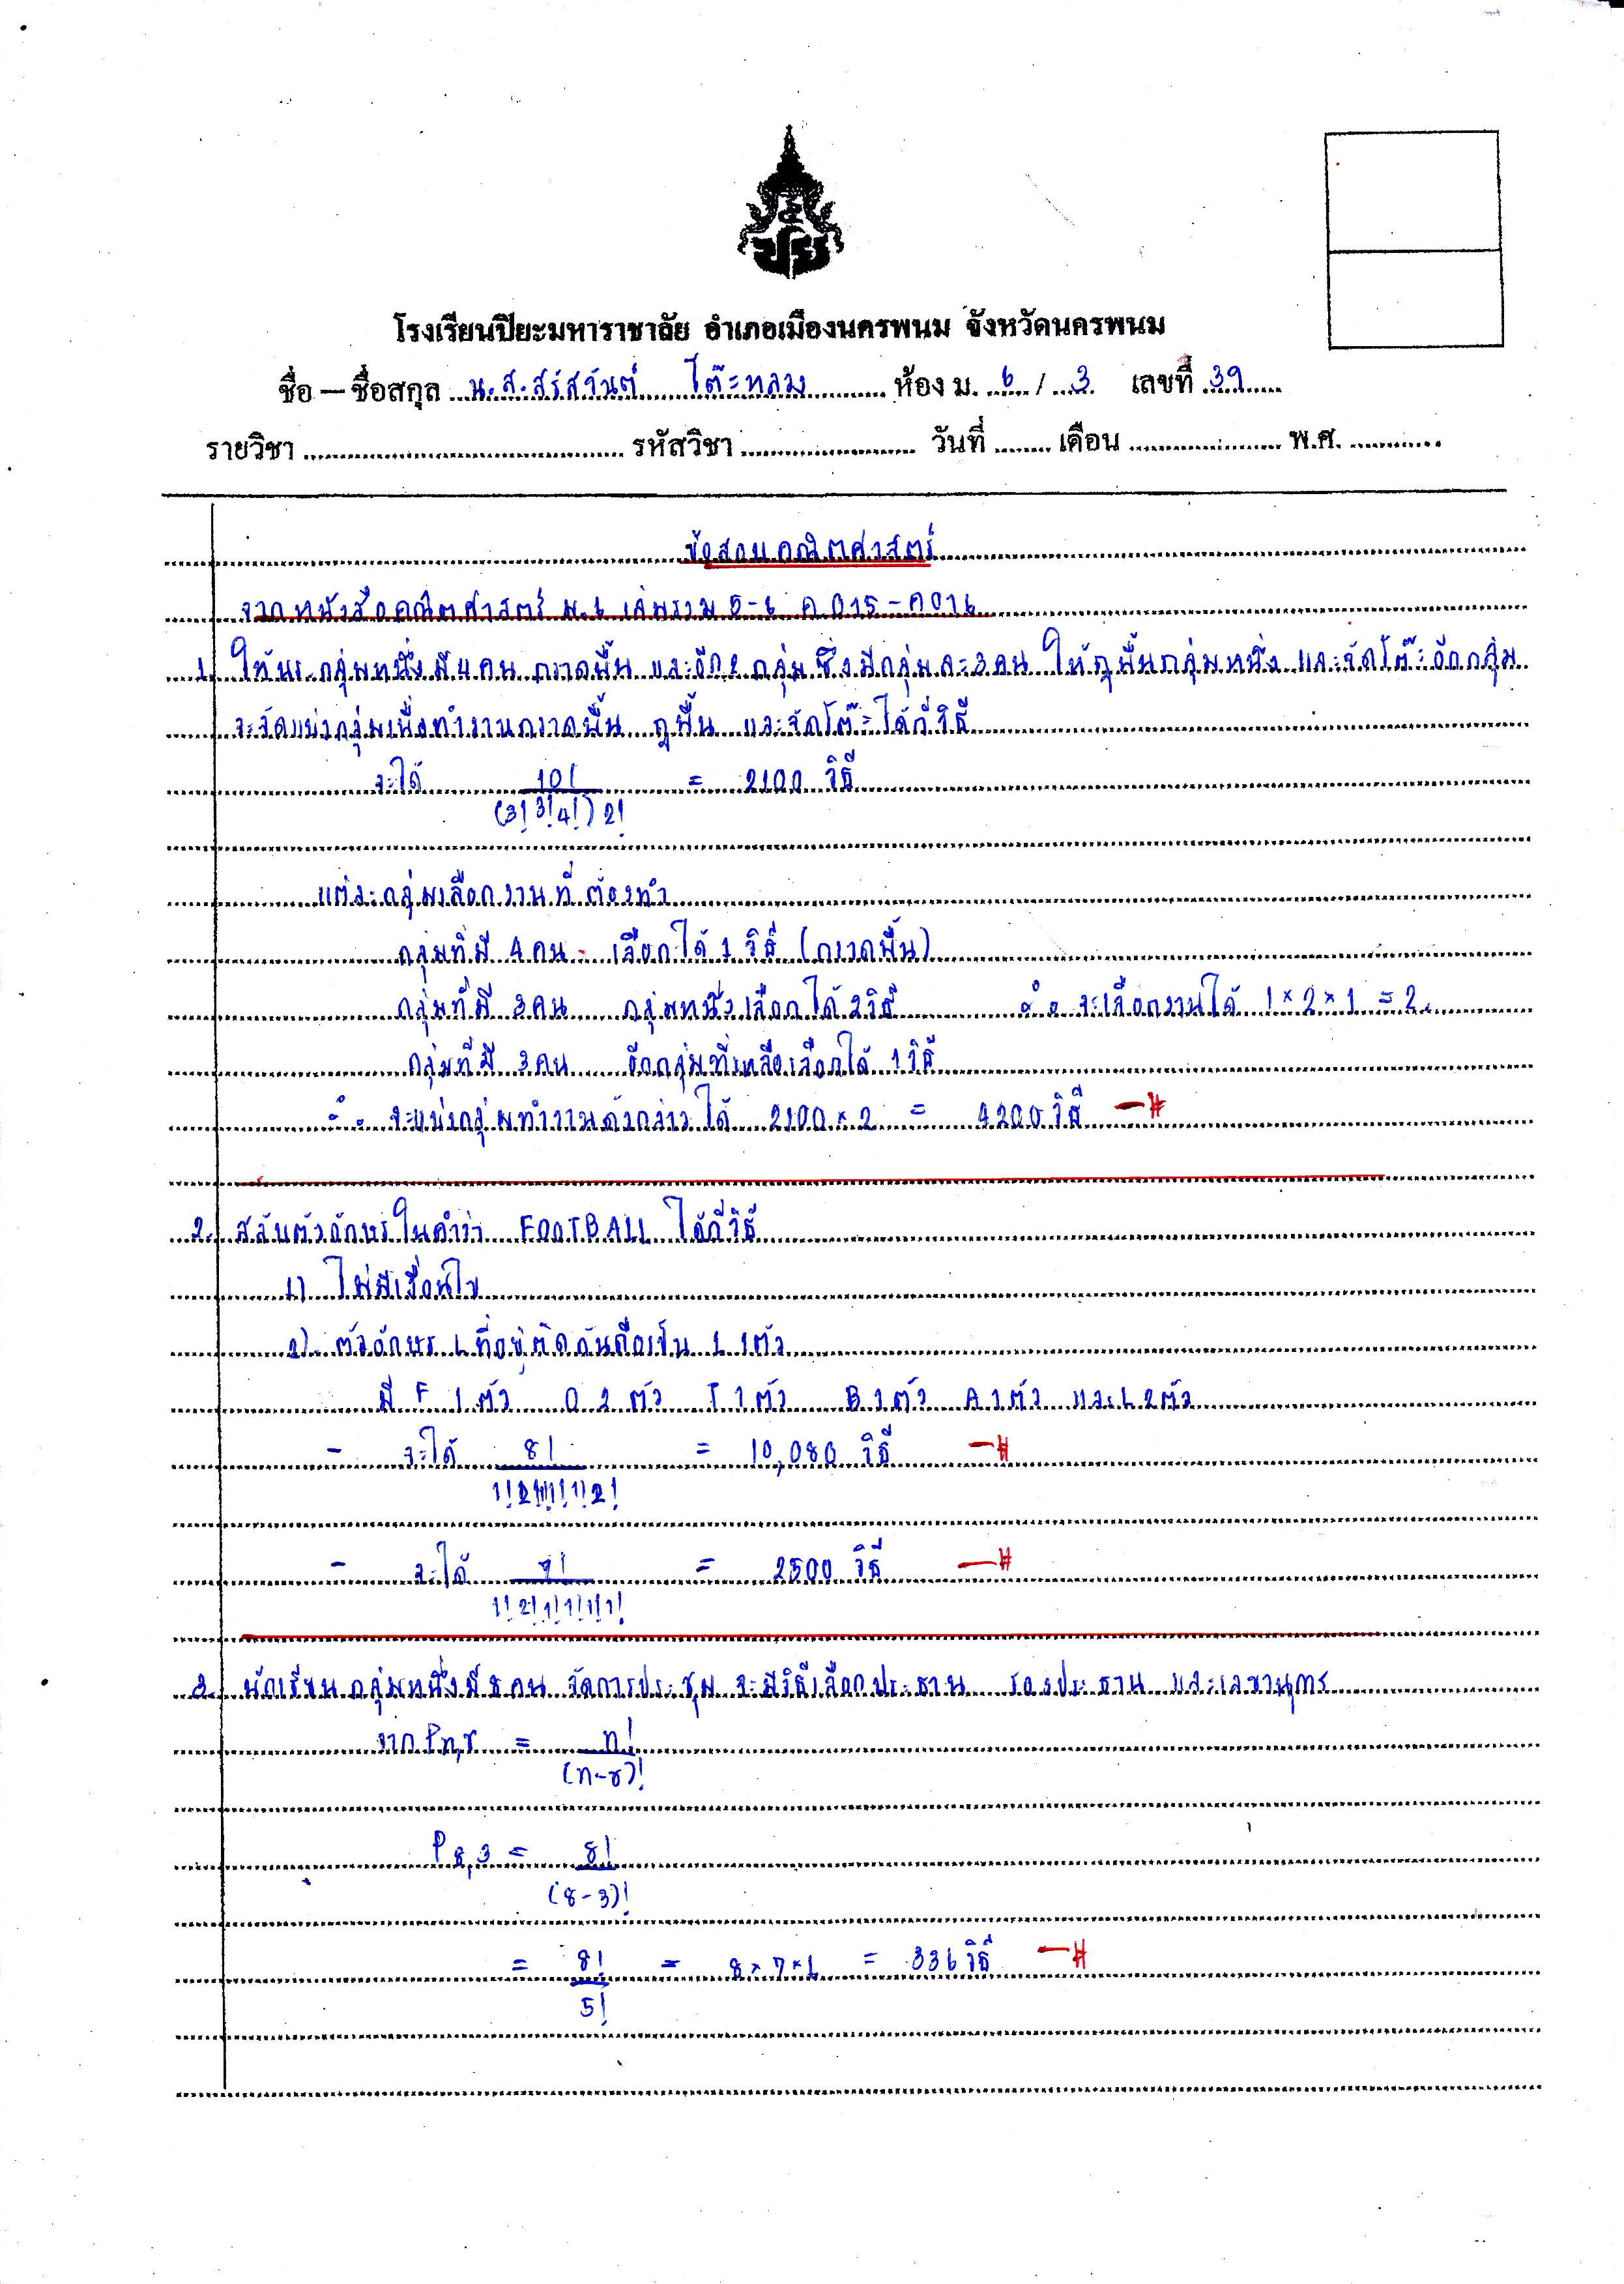 โรงเรียนปิยะมหาราชาลัย อำเภอเมืองนครพนม จังหวัดนครพนม
ชื่อ – ชื่อสกุล น.ส.สรัสวันต์ โต๊ะหลวง ห้อง ม. 6 / 3 เลขที่ 39
รายวิชา รหัสวิชา วันที่ เดือน พ.ศ.
ข้อสอบคณิตศาสตร์
จากหนังสือคณิตศาสตร์ ม.6 เล่มรวม 5-6 ค 015 - ค 016
1. ให้นร.กลุ่มหนึ่งมี 4 คน กวาดพื้น และอีก 2 กลุ่ม ซึ่งมีกลุ่มละ 3 คน ให้ถูพื้นกลุ่มหนึ่ง และจัดโต๊ะอีกกลุ่ม
จะจัดแบ่งกลุ่มเพื่อทำงานกวาดพื้น ถูพื้น และจัดโต๊ะได้กี่วิธี
จะได้ 10! = 2100 วิธี
(3! 3! 4!) 2!
แต่ละกลุ่มเลือกงานที่ต้องทำ
กลุ่มที่มี 4 คน เลือกได้ 1 วิธี (กวาดพื้น)
กลุ่มที่มี 3 คน กลุ่มหนึ่งเลือกได้ 2 วิธี ∴ จะเลือกงานได้ 1 × 2 × 1 = 2
กลุ่มที่มี 3 คน อีกกลุ่มที่เหลือเลือกได้ 1 วิธี
∴ จะแบ่งกลุ่มทำงานดังกล่าวได้ 2100 × 2 = 4200 วิธี —#
2. สลับตัวอักษรในคำว่า FOOTBALL ได้กี่วิธี
1) ไม่มีเงื่อนไข
2) ตัวอักษร L ที่อยู่ติดกันถือเป็น L 1 ตัว
มี F 1 ตัว O 2 ตัว T 1 ตัว B 1 ตัว A 1 ตัว และ L 2 ตัว
- จะได้ 8! = 10,080 วิธี —#
1!2!1!1!1!2!
- จะได้ 7! = 2500 วิธี —#
1!2!1!1!1!1!
3. นักเรียนกลุ่มหนึ่งมี 8 คน จัดการประชุม จะมีวิธีเลือกประธาน รองประธาน และเลขานุการ
จาก Pn,r = n!
(n-r)!
P 8,3 = 8!
(8-3)!
= 8! = 8 × 7 × 6 = 336 วิธี —#
5!